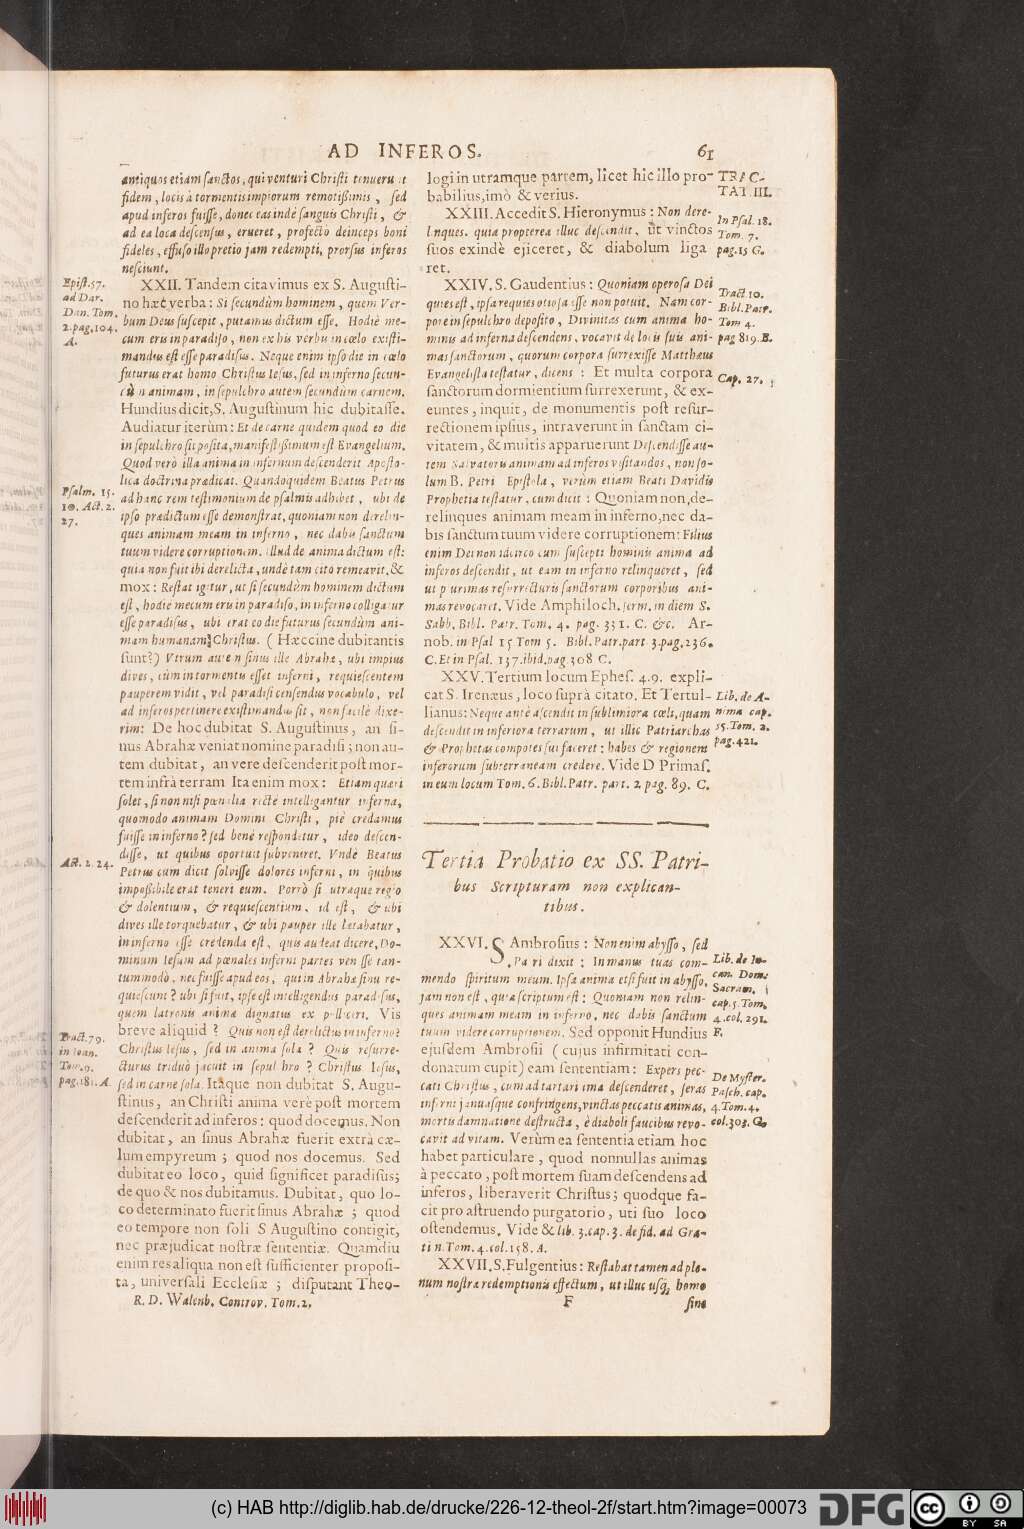 AD INFEROS.
61
antiquos etiam sanctos, qui venturi Christi tenuerunt
fidem, locis à tormentis impiorum remotissimis, sed
apud inferos fuisse, donec eas inde sanguis Christi, &
ad ea loca descensus, erueret, profecto deinceps boni
fideles, effuso illo pretio jam redempti, prorsus inferos
nesciunt.
XXII. Tandem citavimus ex S. Augusti-
no hæc verba: Si secundùm hominem, quem Ver-
bum Deus suscepit, putamus dictum esse. Hodiè me-
cum eris in paradiso, non ex his verbis in cœlo existi-
mandus est esse paradisus. Neque enim ipso die in cœlo
futurus erat homo Christus Iesus, sed in inferno secun-
cùm animam, in sepulchro autem secundùm carnem.
Hundius dicit, S. Augustinum hic dubitasse.
Audiatur iterùm: Et de carne quidem quod eo die
in sepulchro sit posita, manifestissimum est Evangelium.
Quod verò illa anima in infernum descenderit Aposto-
lica doctrina prædicat. Quandoquidem Beatus Petrus
ad hanc rem testimonium de psalmis adhibet, ubi de
ipso prædictum esse demonstrat, quoniam non derelin-
ques animam meam in inferno, nec dabis sanctum
tuum videre corruptionem. illud de anima dictum est:
quia non fuit ibi derelicta, undè tam cito remeavit. &
mox: Restat igitur, ut si secundùm hominem dictum
est, hodie mecum eris in paradiso, in inferno colligatur
esse paradisus, ubi erat eo die futurus secundùm ani-
mam humanam Christus. (Hæccine dubitantis
sunt?) Vtrum autem sinus ille Abrahæ, ubi impius
dives, cùm in tormentis esset inferni, requiescentem
pauperem vidit, vel paradisi censendus vocabulo, vel
ad inferos pertinere existimandus sit, non facilè dixe-
rim: De hoc dubitat S. Augustinus, an si-
nus Abrahæ veniat nomine paradisi; non au-
tem dubitat, an vere descenderit post mor-
tem infrà terram Ita enim mox: Etiam quæri
solet, si non nisi pœnalia rectè intelligantur inferna,
quomodo animam Domini Christi, piè credamus
fuisse in inferno? sed benè respondetur, ideo descen-
disse, ut quibus oportuit subveniret. Vndè Beatus
Petrus eum dicit solvisse dolores inferni, in quibus
impossibile erat teneri eum. Porrò si utraque regio
& dolentium, & requiescentium, id est, & ubi
dives ille torquebatur, & ubi pauper ille letabatur,
in inferno esse credenda est, quis audeat dicere, Do-
minum Iesum ad pœnales inferni partes venisse tan-
tummodò, nec fuisse apud eos, qui in Abrahæ sinu re-
quiescunt? ubi si fuit, ipse est intelligendus paradisus,
quem latronis animæ dignatus est polliceri. Vis
breve aliquid? Quis non est derelictus in inferno?
Christus Iesus, sed in anima sola? Quis resurre-
cturus triduò jacuit in sepulchro? Christus Iesus,
sed in carne sola. Itaque non dubitat S. Augu-
stinus, an Christi anima verè post mortem
descenderit ad inferos: quod docemus. Non
dubitat, an sinus Abrahæ fuerit extrà cæ-
lum empyreum; quod nos docemus. Sed
dubitat eo loco, quid significet paradisus;
de quo & nos dubitamus. Dubitat, quo lo-
co determinato fuerit sinus Abrahæ; quod
eo tempore non soli S Augustino contigit,
nec præjudicat nostræ sententiæ. Quamdiu
enim res aliqua non est sufficienter proposi-
ta, universali Ecclesiæ; disputant Theo-
R. D. Walenb. Controv. Tom. 2.
Epist. 57.
ad Dar.
Dan. Tom.
2. pag. 104.
A.
Psalm. 15.
10. Act. 2.
27.
Act. 2. 24.
Tract. 79.
in Ioan.
Tom. 9.
pag. 181. A.
logi in utramque partem, licet hic illo pro-
babilius, imò & verius.
XXIII. Accedit S. Hieronymus: Non dere-
linques. quia propterea illuc descendit, ût vinctos
suos exindè ejiceret, & diabolum liga
ret.
XXIV. S. Gaudentius: Quoniam operosa Dei
quies est, ipsa requies otiosa esse non potuit. Nam cor-
pore in sepulchro deposito, Divinitas cum anima ho-
minis ad inferna descendens, vocavit de locis suis ani-
mas sanctorum, quorum corpora surrexisse Matthæus
Evangelista testatur, dicens: Et multa corpora
sanctorum dormientium surrexerunt, & ex-
euntes, inquit, de monumentis post resur-
rectionem ipsius, intraverunt in sanctam ci-
vitatem, & multis apparuerunt Descendisse au-
tem Salvatoris animam ad inferos visitandos, non so-
lum B. Petri Epistola, verùm etiam Beati Davidis
Prophetia testatur, cum dicit: Quoniam non de-
relinques animam meam in inferno, nec da-
bis sanctum tuum videre corruptionem: Filius
enim Dei non idcirco cum suscepti hominis anima ad
inferos descendit, ut eam in inferno relinqueret, sed
ut plurimas resurrecturis sanctorum corporibus ani-
mas revocaret. Vide Amphiloch. serm. in diem S.
Sabb. Bibl. Patr. Tom. 4. pag. 331. C. &c. Ar-
nob. in Psal 15 Tom 5. Bibl. Patr. part 3. pag. 236.
C. Et in Psal. 137. ibid. pag 308 C.
XXV. Tertium locum Ephes. 4. 9. expli-
cat S. Irenæus, loco suprà citato. Et Tertul-
lianus: Neque antè ascendit in sublimiora cœli, quam
descendit in inferiora terrarum, ut illic Patriarchas
& Prophetas compotes sui faceret: habes & regionem
inferorum subterraneam credere. Vide D Primas.
in eum locum Tom. 6. Bibl. Patr. part. 2 pag. 89. C.
Tertia Probatio ex SS. Patri-
bus Scripturam non explican-
tibus.
XXVI. S. Ambrosius: Non enim abysso, sed
Patri dixit: In manus tuas com-
mendo spiritum meum. Ipsa anima etsi fuit in abysso,
jam non est, quia scriptum est: Quoniam non relin-
ques animam meam in inferno, nec dabis sanctum
tuum videre corruptionem. Sed opponit Hundius
ejusdem Ambrosii (cujus infirmitati con-
donatum cupit) eam sententiam: Expers pec-
cati Christus, cum ad tartari ima descenderet, seras
inferni januasque confringens, vinctas peccatis animas,
mortis damnatione destructa, è diaboli faucibus revo-
cavit ad vitam. Verùm ea sententia etiam hoc
habet particulare, quod nonnullas animas
à peccato, post mortem suam descendens ad
inferos, liberaverit Christus; quodque fa-
cit pro astruendo purgatorio, uti suo loco
ostendemus. Vide & lib. 3. cap. 3. de fid. ad Gra-
tin. Tom. 4. col. 158. A.
XXVII. S. Fulgentius: Restabat tamen ad ple-
num nostræ redemptionis effectum, ut illuc usq; homo
F
sine
TRAC-
TAT III.
In Psal. 18.
Tom. 7.
pag. 15 G.
Tract 10.
Bibl. Patr.
Tom 4.
pag 819. B.
Cap. 27.
Lib. de A-
nima cap.
55. Tom. 2.
pag. 421.
Lib. de In-
can. Dom.
Sacram.
cap. 5. Tom.
4. col. 291.
F.
De Myster.
Pasch. cap.
4. Tom. 4.
col. 303. G.
(c) HAB http://diglib.hab.de/drucke/226-12-theol-2f/start.htm?image=00073
DFG
cc
BY SA